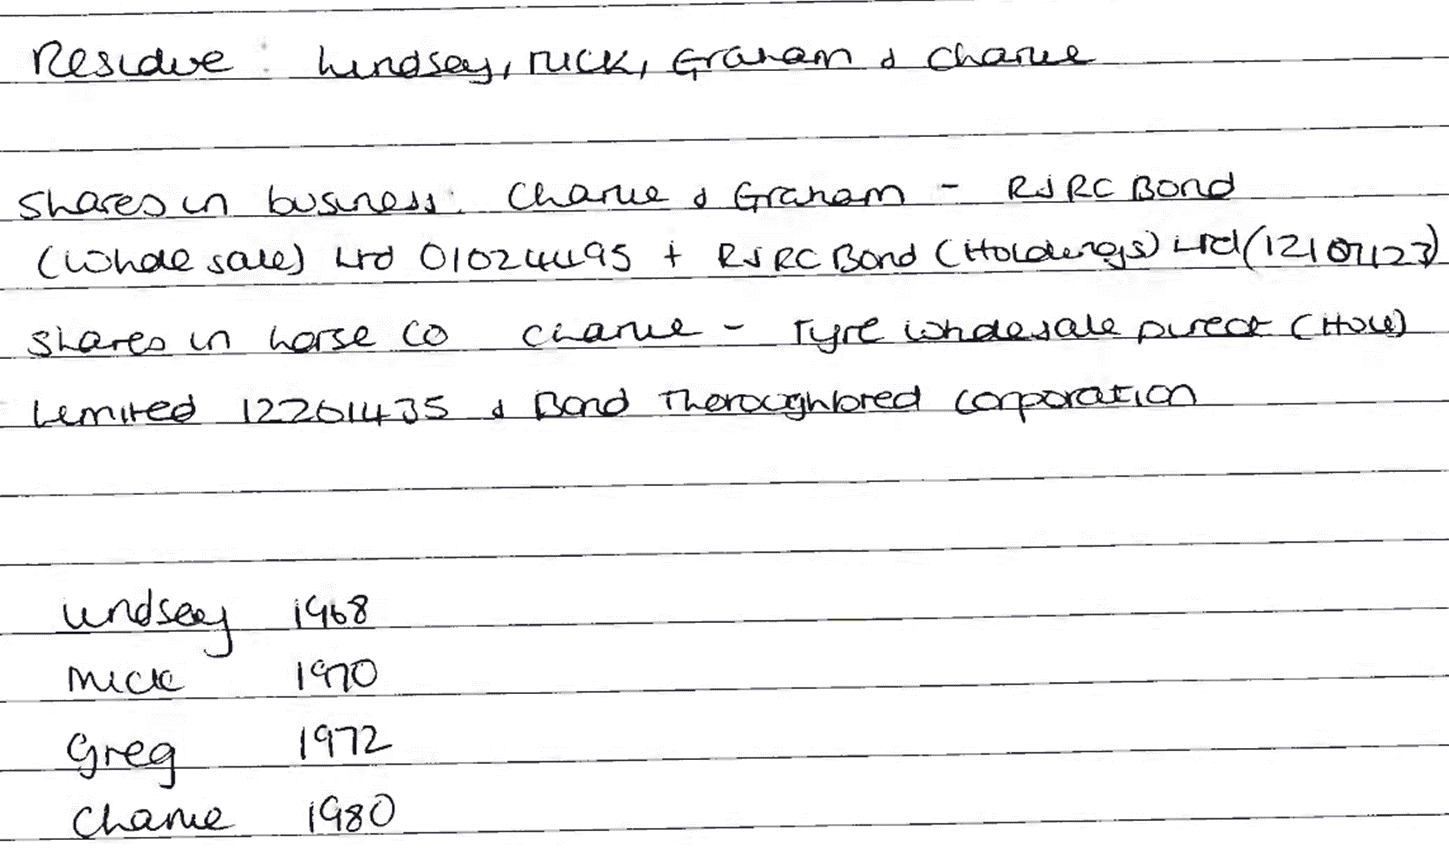 Residue : Lindsey, Nick, Graham & Charlie
Shares in business: Charlie & Graham - R&RC Bond
(Wholesale) Ltd 01024495 + R&RC Bond (Holdings) Ltd (12107123)
Shares in horse co Charlie - Tyre Wholesale Direct (Hull)
Limited 12261435 & Bond Thoroughbred Corporation
Lindsey 1968
Nick 1970
Greg 1972
Charlie 1980